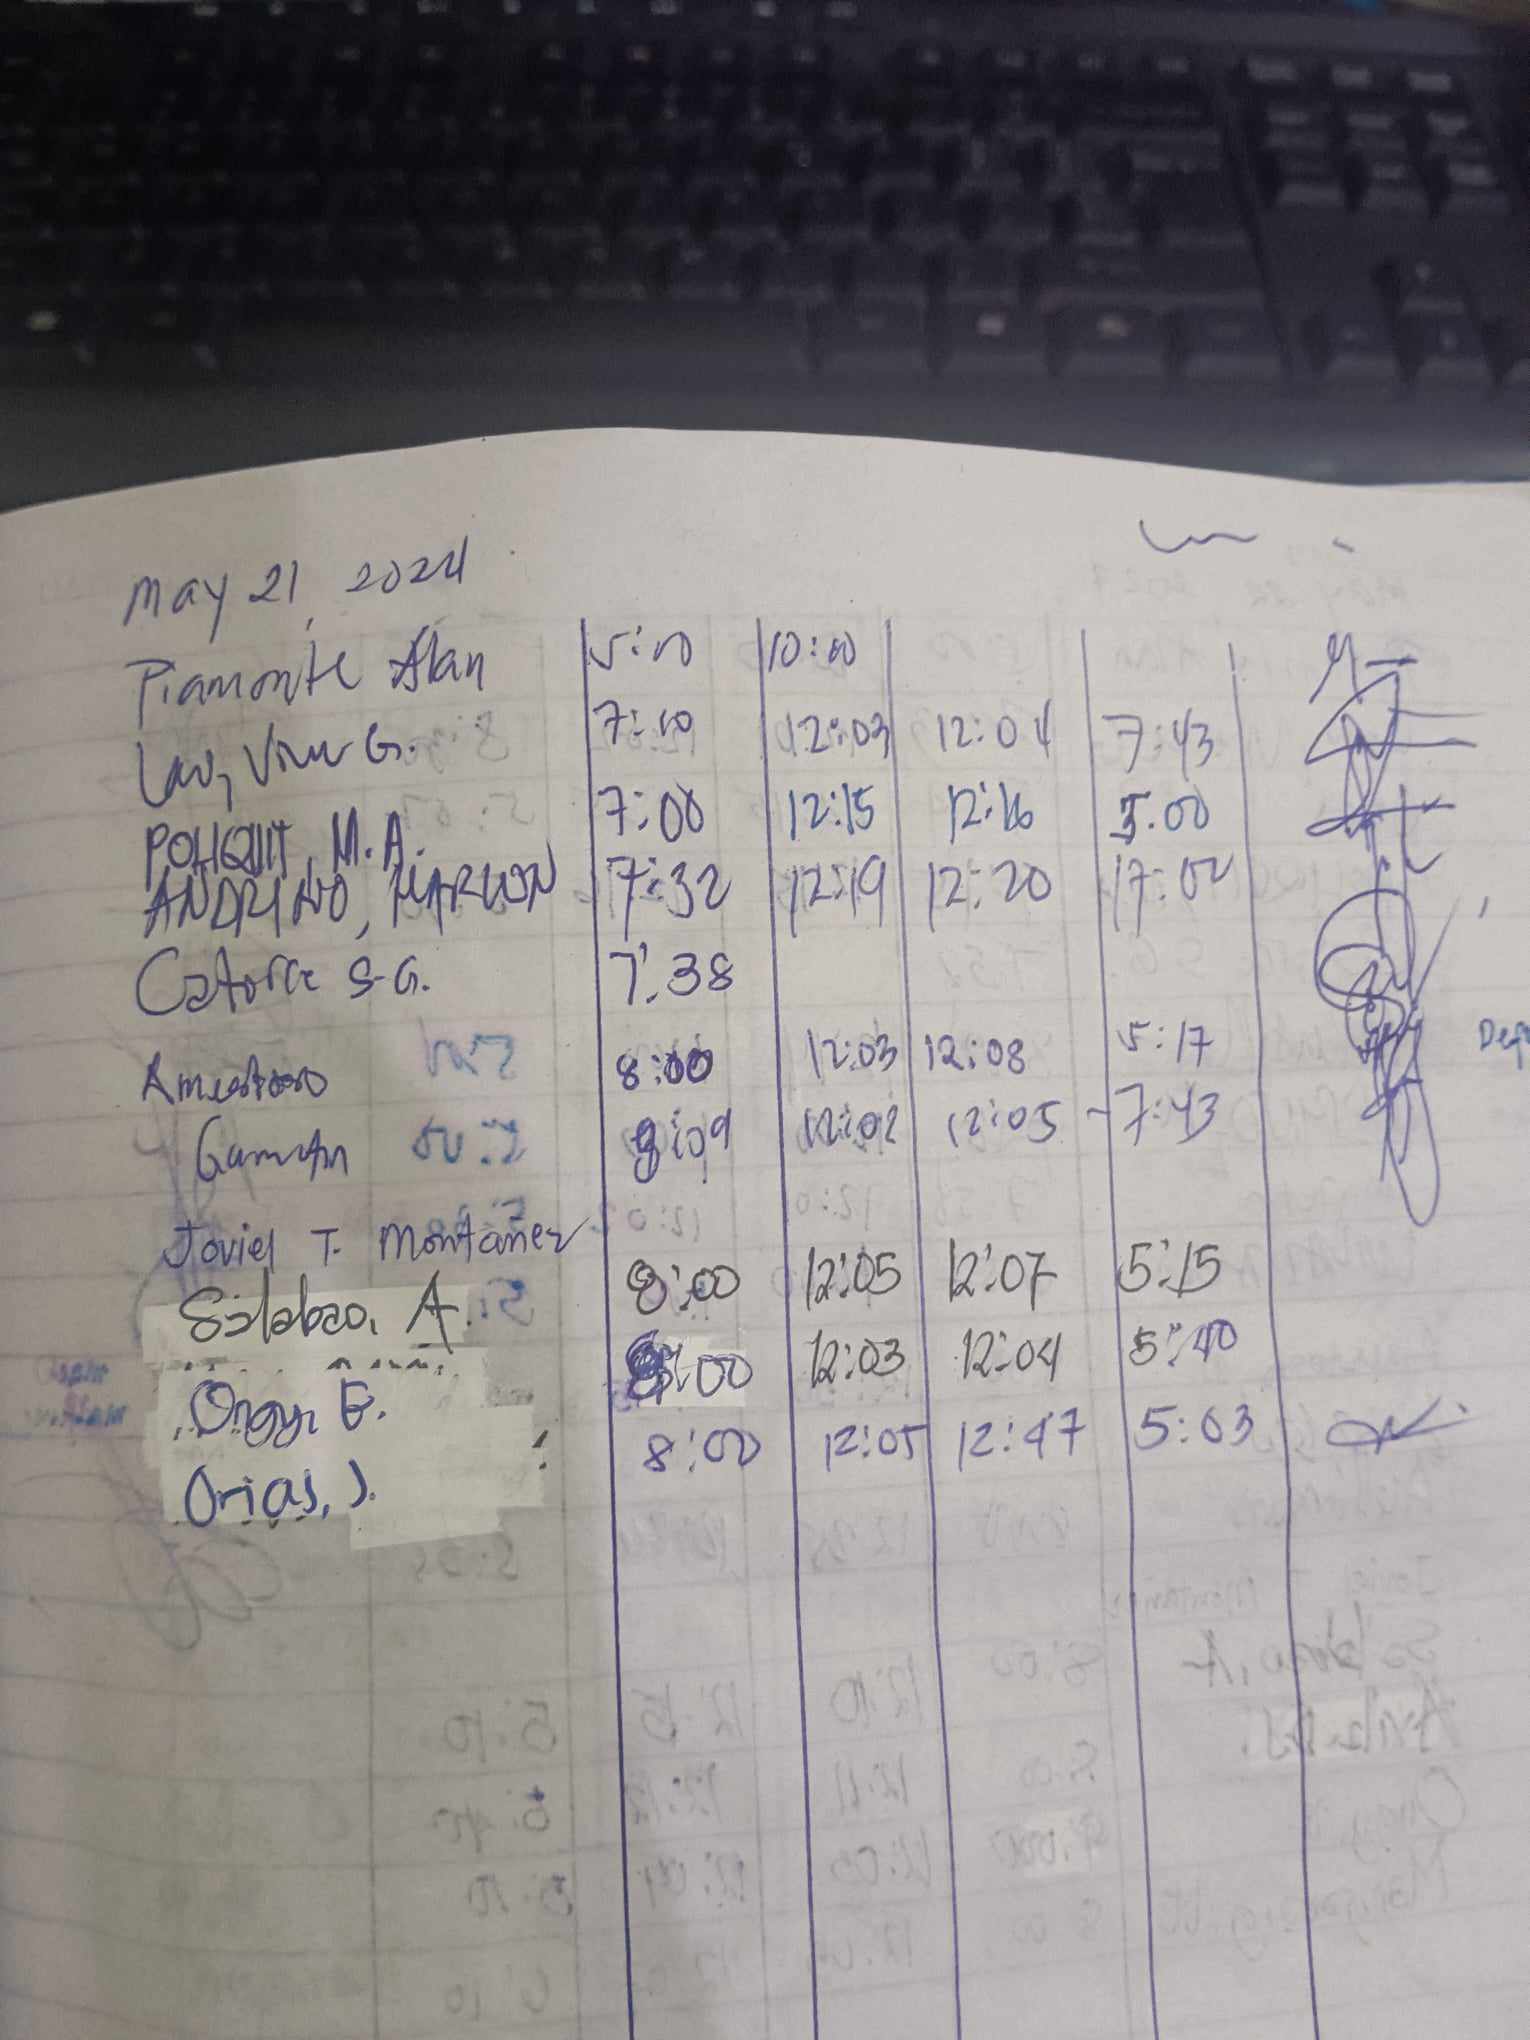 May 21, 2024
Piamonte Alan 5:00 10:00
7:00 12:03 12:04 7:43
POLIQUIT, M.A. 7:00 12:15 12:16 5:00
ANDRINO, MARLON 7:32 12:19 12:20 17:02
Catorce S.G. 7:38
8:00 12:03 12:08 5:17
8:09 12:02 12:05 7:43
Joviel T. Montañez
Salabao, A. 8:00 12:05 12:07 5:15
8:00 12:03 12:04 5:40
Orias, J. 8:00 12:05 12:47 5:03